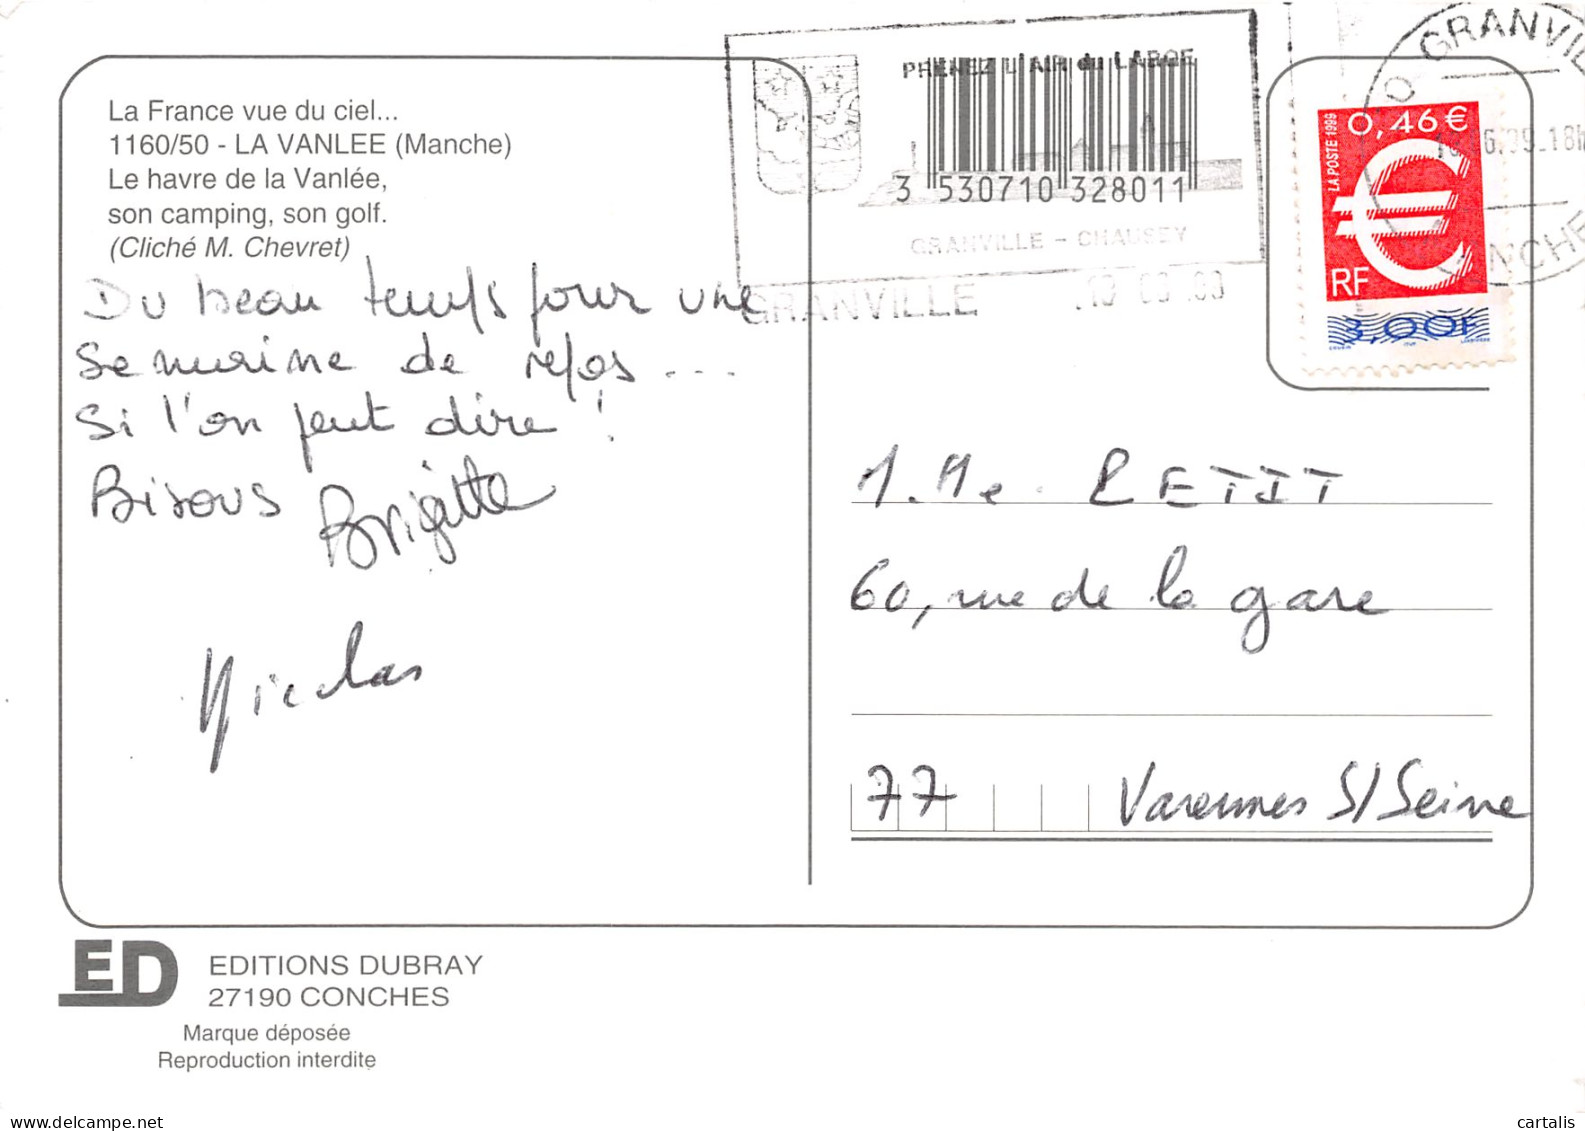 La France vue du ciel...
1160/50 - LA VANLEE (Manche)
Le havre de la Vanlée,
son camping, son golf.
(Cliché M. Chevret)
Du beau temps pour une
semaine de repos...
Si l'on peut dire !
Bisous Brigitte
Nicolas
PRENEZ L'AIR du LARGE
3 530710 328011
GRANVILLE - CHAUSEY
GRANVILLE
GRANVILLE
MANCHE
LA POSTE 1999
0,46 €
RF
3,00F
60, rue de la gare
77 Varennes S/Seine
ED
EDITIONS DUBRAY
27190 CONCHES
Marque déposée
Reproduction interdite
www.delcampe.net
cartalis